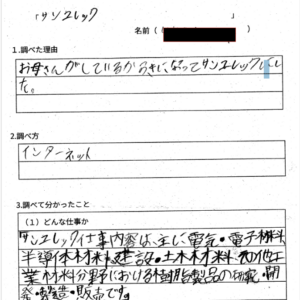 「サンユレック　　　」
名前（
1.調べた理由
お母さんがしているからきになってサンユレックにし
た。
2.調べ方
インターネット
3.調べて分かったこと
（1）どんな仕事か
サンユレック仕事内容は、主に電気・電子材料
半導体材料、建設・土木材料、その他工
業材料分野における樹脂製品の研究・開
発・製造・販売です。